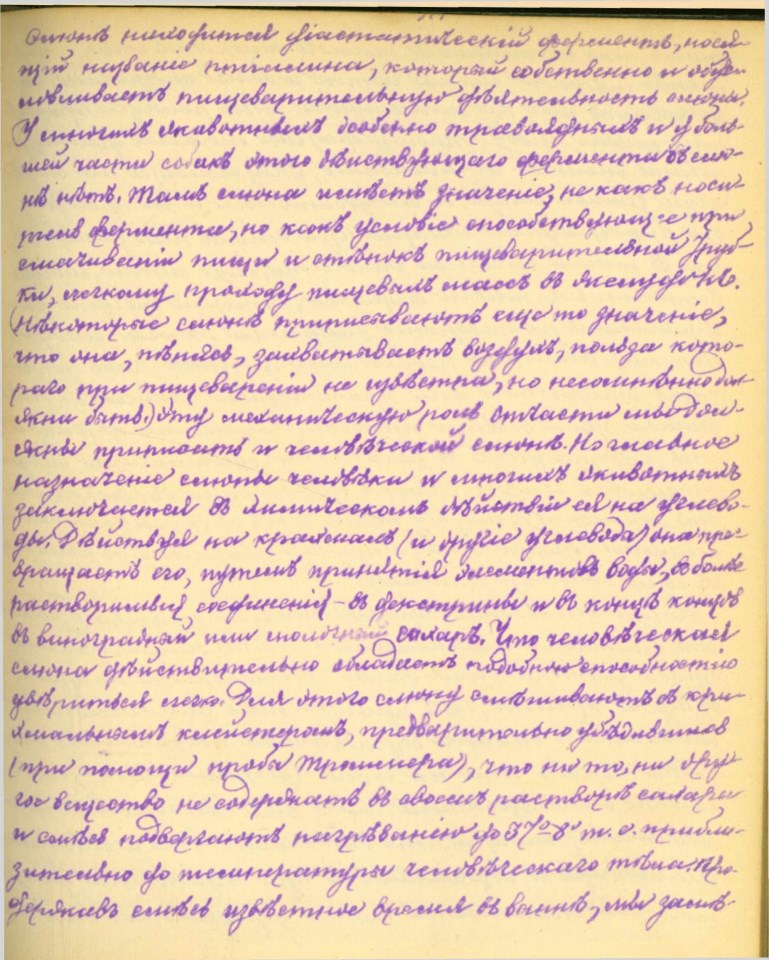 слюнѣ находится діастатическій ферментъ, нося-
щій названіе птіалина, который собственно и обус-
ловливаетъ пищеварительную дѣятельность слюны.
У многихъ животныхъ особенно травоядныхъ и у боль-
шей части собакъ этого дѣйствующаго фермента въ слю-
нѣ нѣтъ. Тамъ слюна имѣетъ значеніе, не какъ носи-
тель фермента, но какъ условіе способствующее при
смачиваніи пищи и стѣнокъ пищеварительной труб-
ки, легкому проходу пищевыхъ массъ въ желудокъ.
(Нѣкоторые слюнѣ приписываютъ еще то значеніе,
что она, пѣнясь, захватываетъ воздухъ, польза кото-
раго при пищевареніи не извѣстна, но несомнѣнно дол-
жна быть.) Эту механическую роль отчасти мы дол-
жны приписать и человѣческой слюнѣ. Но главное
назначеніе слюны человѣка и многихъ животныхъ
заключается въ химическомъ дѣйствіи ея на углево-
ды. Дѣйствуя на крахмалъ (и другіе углеводы) она пре-
вращаетъ его, путемъ принятія элементовъ воды, въ болѣе
растворимыя соединенія – въ декстрины и въ концѣ концовъ
въ виноградный или молочный сахаръ. Что человѣческая
слюна дѣйствительно обладаетъ подобною способностію
увѣриться легко. Для этого слюну смѣшиваютъ съ кра-
хмальнымъ клейстеромъ, предварительно убѣдившись
(при помощи пробы Троммера), что ни то, ни дру-
гое вещество не содержатъ въ своемъ растворѣ сахара
и смѣсь подвергаютъ нагрѣванію до 37°-8° т. е. прибли-
зительно до температуры человѣческаго тѣла. Про-
державъ смѣсь извѣстное время въ ваннѣ, мы замѣ-